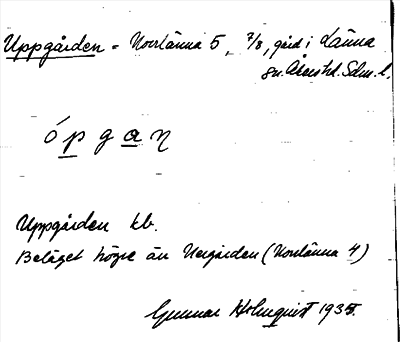 Uppgården = Norrlänna 5, 7/8, gård i Länna
sn. Åkers hd. Sdm. l.
ópgaɳ
Uppgården kb.
Beläget högre än Nergården (Norrlänna 4)
Gunnar Holmquist 1935.